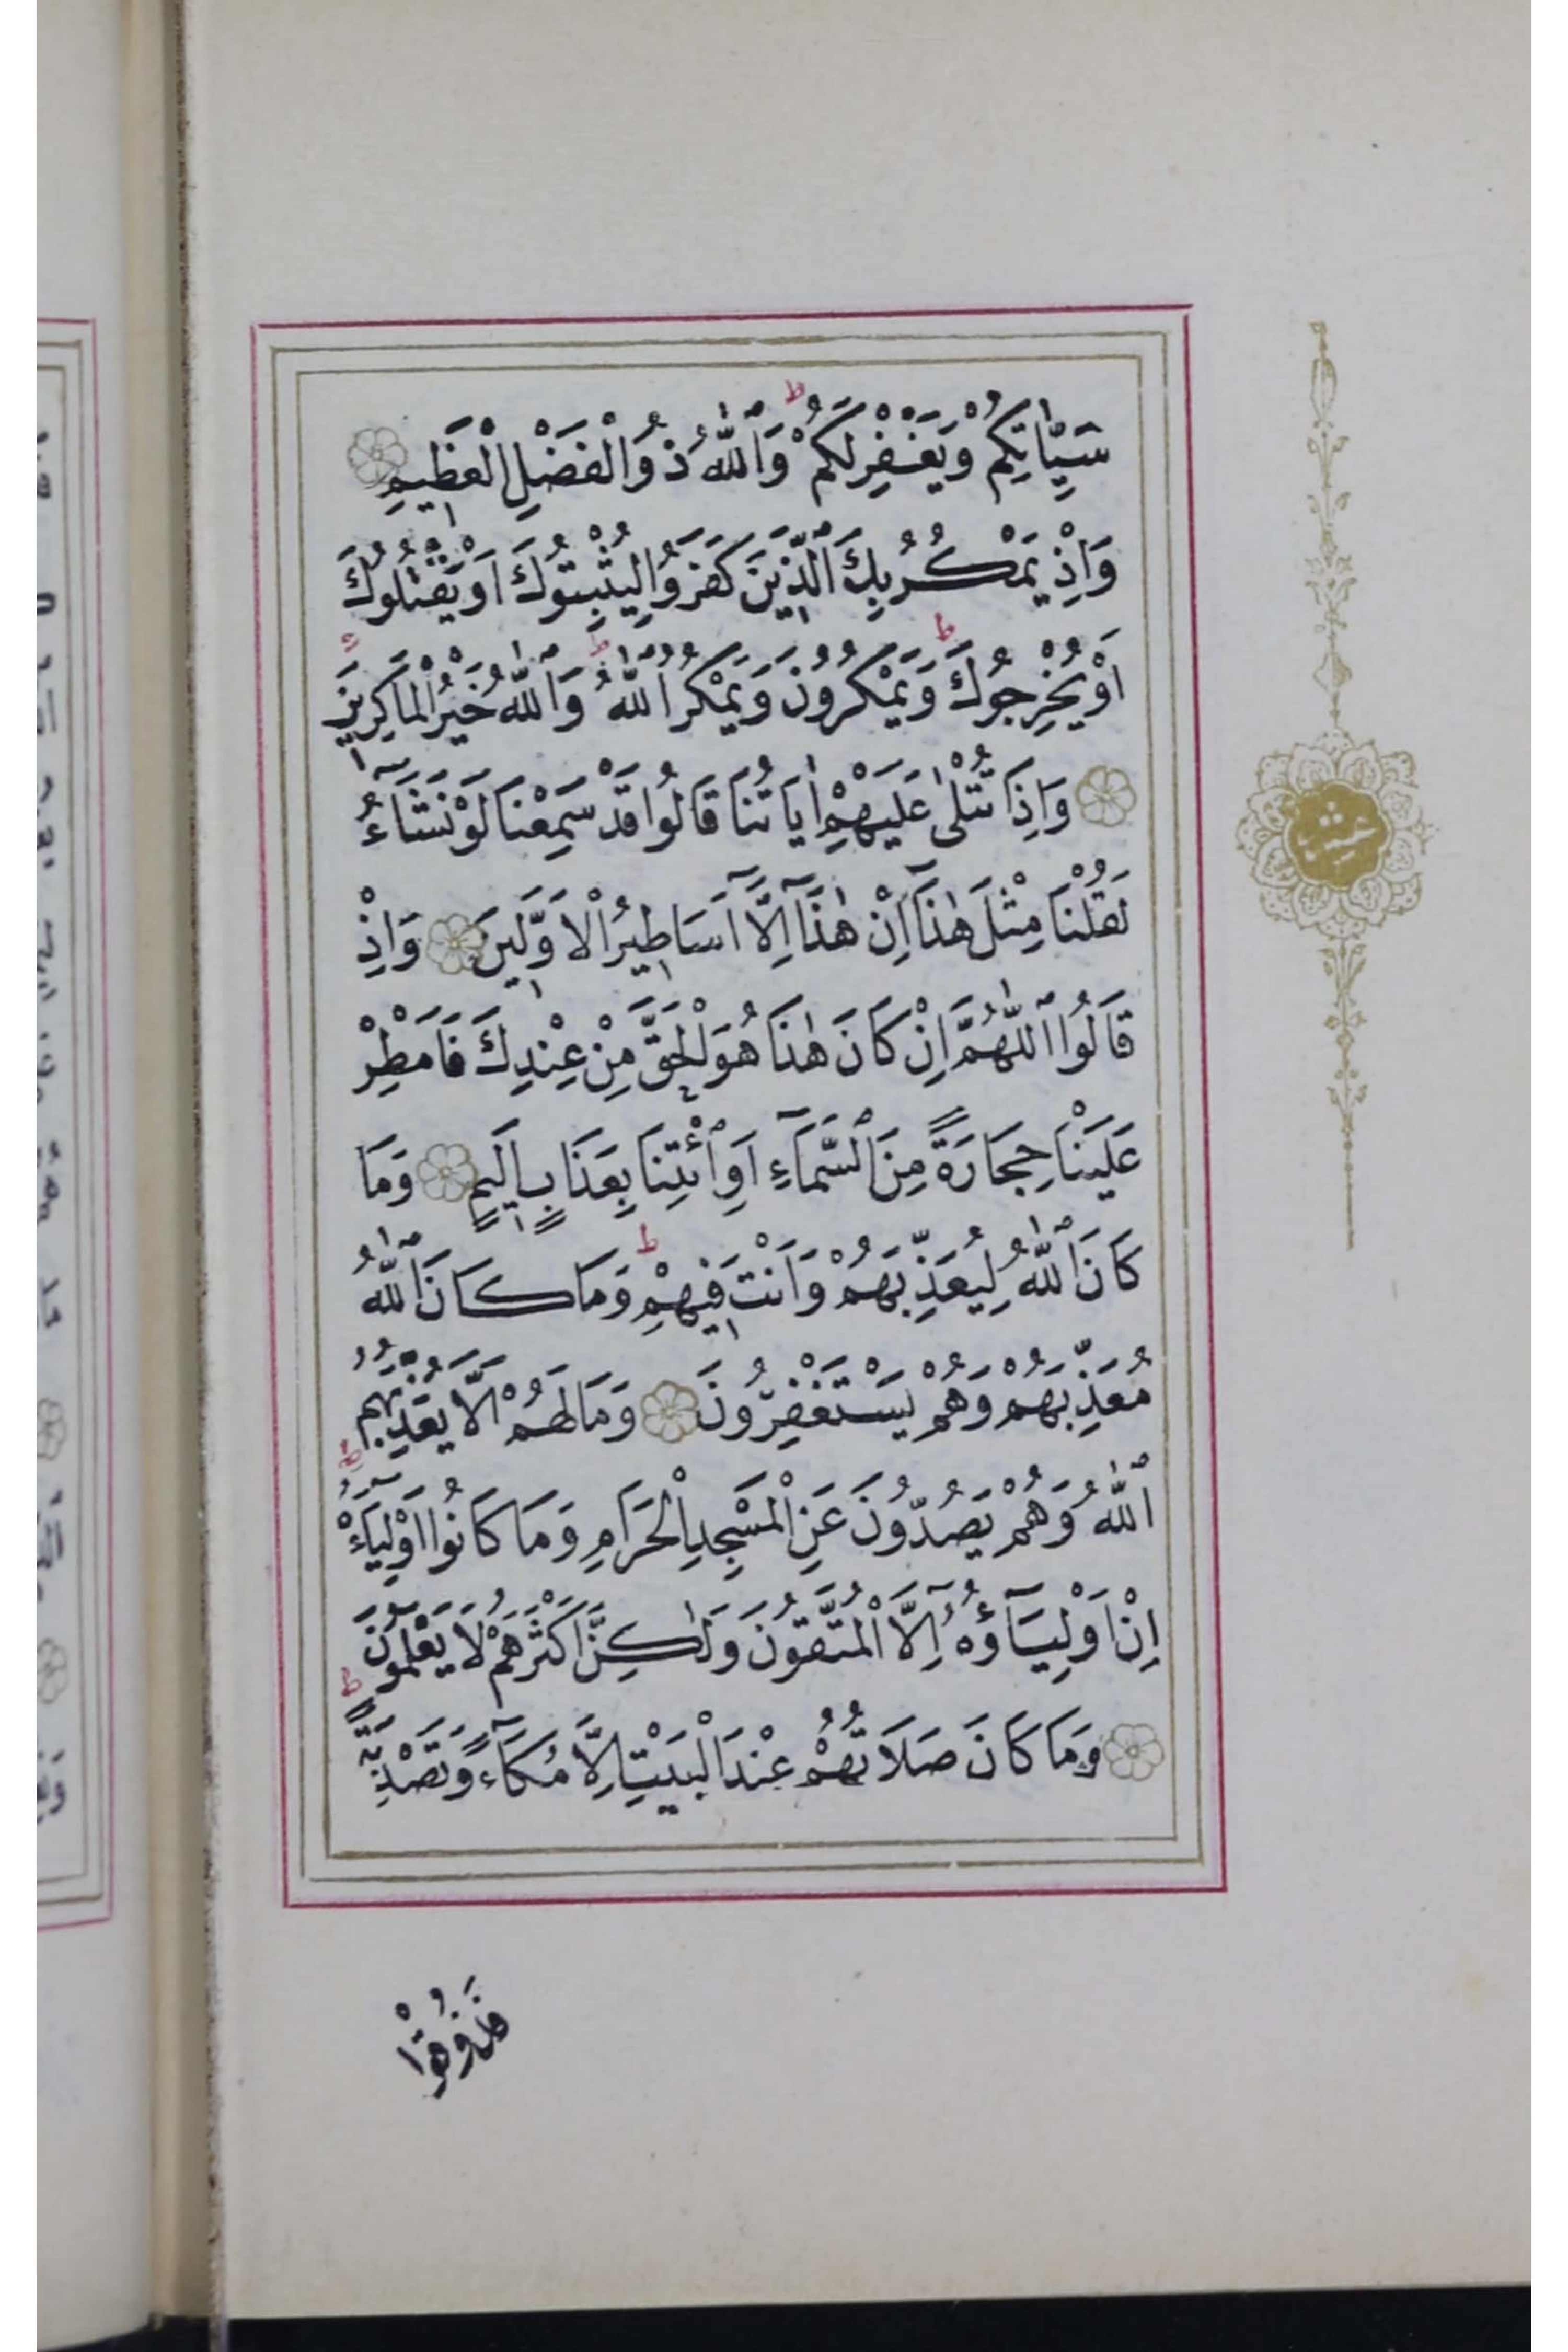 سَيِّـَٔاتِكُمْ وَيَغْفِرْلَكُمْ وَٱللّٰهُ ذُوالْفَضْلِ الْعَظِيمِ
وَاِذْ يَمْكُرُ بِكَ ٱلَّذِينَ كَفَرَوُا لِيُثْبِتُوكَ اَوْ يَقْتُلُوكَ
اَوْ يُخْرِجُوكَ وَيَمْكُرُونَ وَيَمْكُرُ ٱللّٰهُ وَٱللّٰهُ خَيْرُ الْمَاكِرِينَ
وَاِذَا تُتْلٰى عَلَيْهِمْ اٰيَاتُنَا قَالُوا قَدْ سَمِعْنَا لَوْ نَشَآءُ
لَقُلْنَا مِثْلَ هٰذَآ اِنْ هٰذَآ اِلَّآ اَسَاطِيرُ الْاَوَّلِينَ وَاِذْ
قَالُوا ٱللّٰهُمَّ اِنْ كَانَ هٰذَا هُوَ لْحَقَّ مِنْ عِنْدِكَ فَاَمْطِرْ
عَلَيْنَا حِجَارَةً مِنَ ٱلسَّمَآءِ اَوِ ٱئْتِنَا بِعَذَابٍ اَلِيمٍ وَمَا
كَانَ ٱللّٰهُ لِيُعَذِّبَهُمْ وَاَنْتَ فِيهِمْ وَمَا كَانَ ٱللّٰهُ
مُعَذِّبَهُمْ وَهُمْ يَسْتَغْفِرُونَ وَمَا لَهُمْ اَلَّا يُعَذِّبَهُمُ
ٱللّٰهُ وَهُمْ يَصُدُّونَ عَنِ الْمَسْجِدِ الْحَرَامِ وَمَا كَانُوا اَوْلِيَآءَهُ
اِنْ اَوْلِيَآؤُهُٓ اِلَّا الْمُتَّقُونَ وَلٰكِنَّ اَكْثَرَهُمْ لَا يَعْلَمُونَ
وَمَا كَانَ صَلَاتُهُمْ عِنْدَ الْبَيْتِ اِلَّا مُكَآءً وَتَصْدِيَةً
فَذُوقُوا
عشر